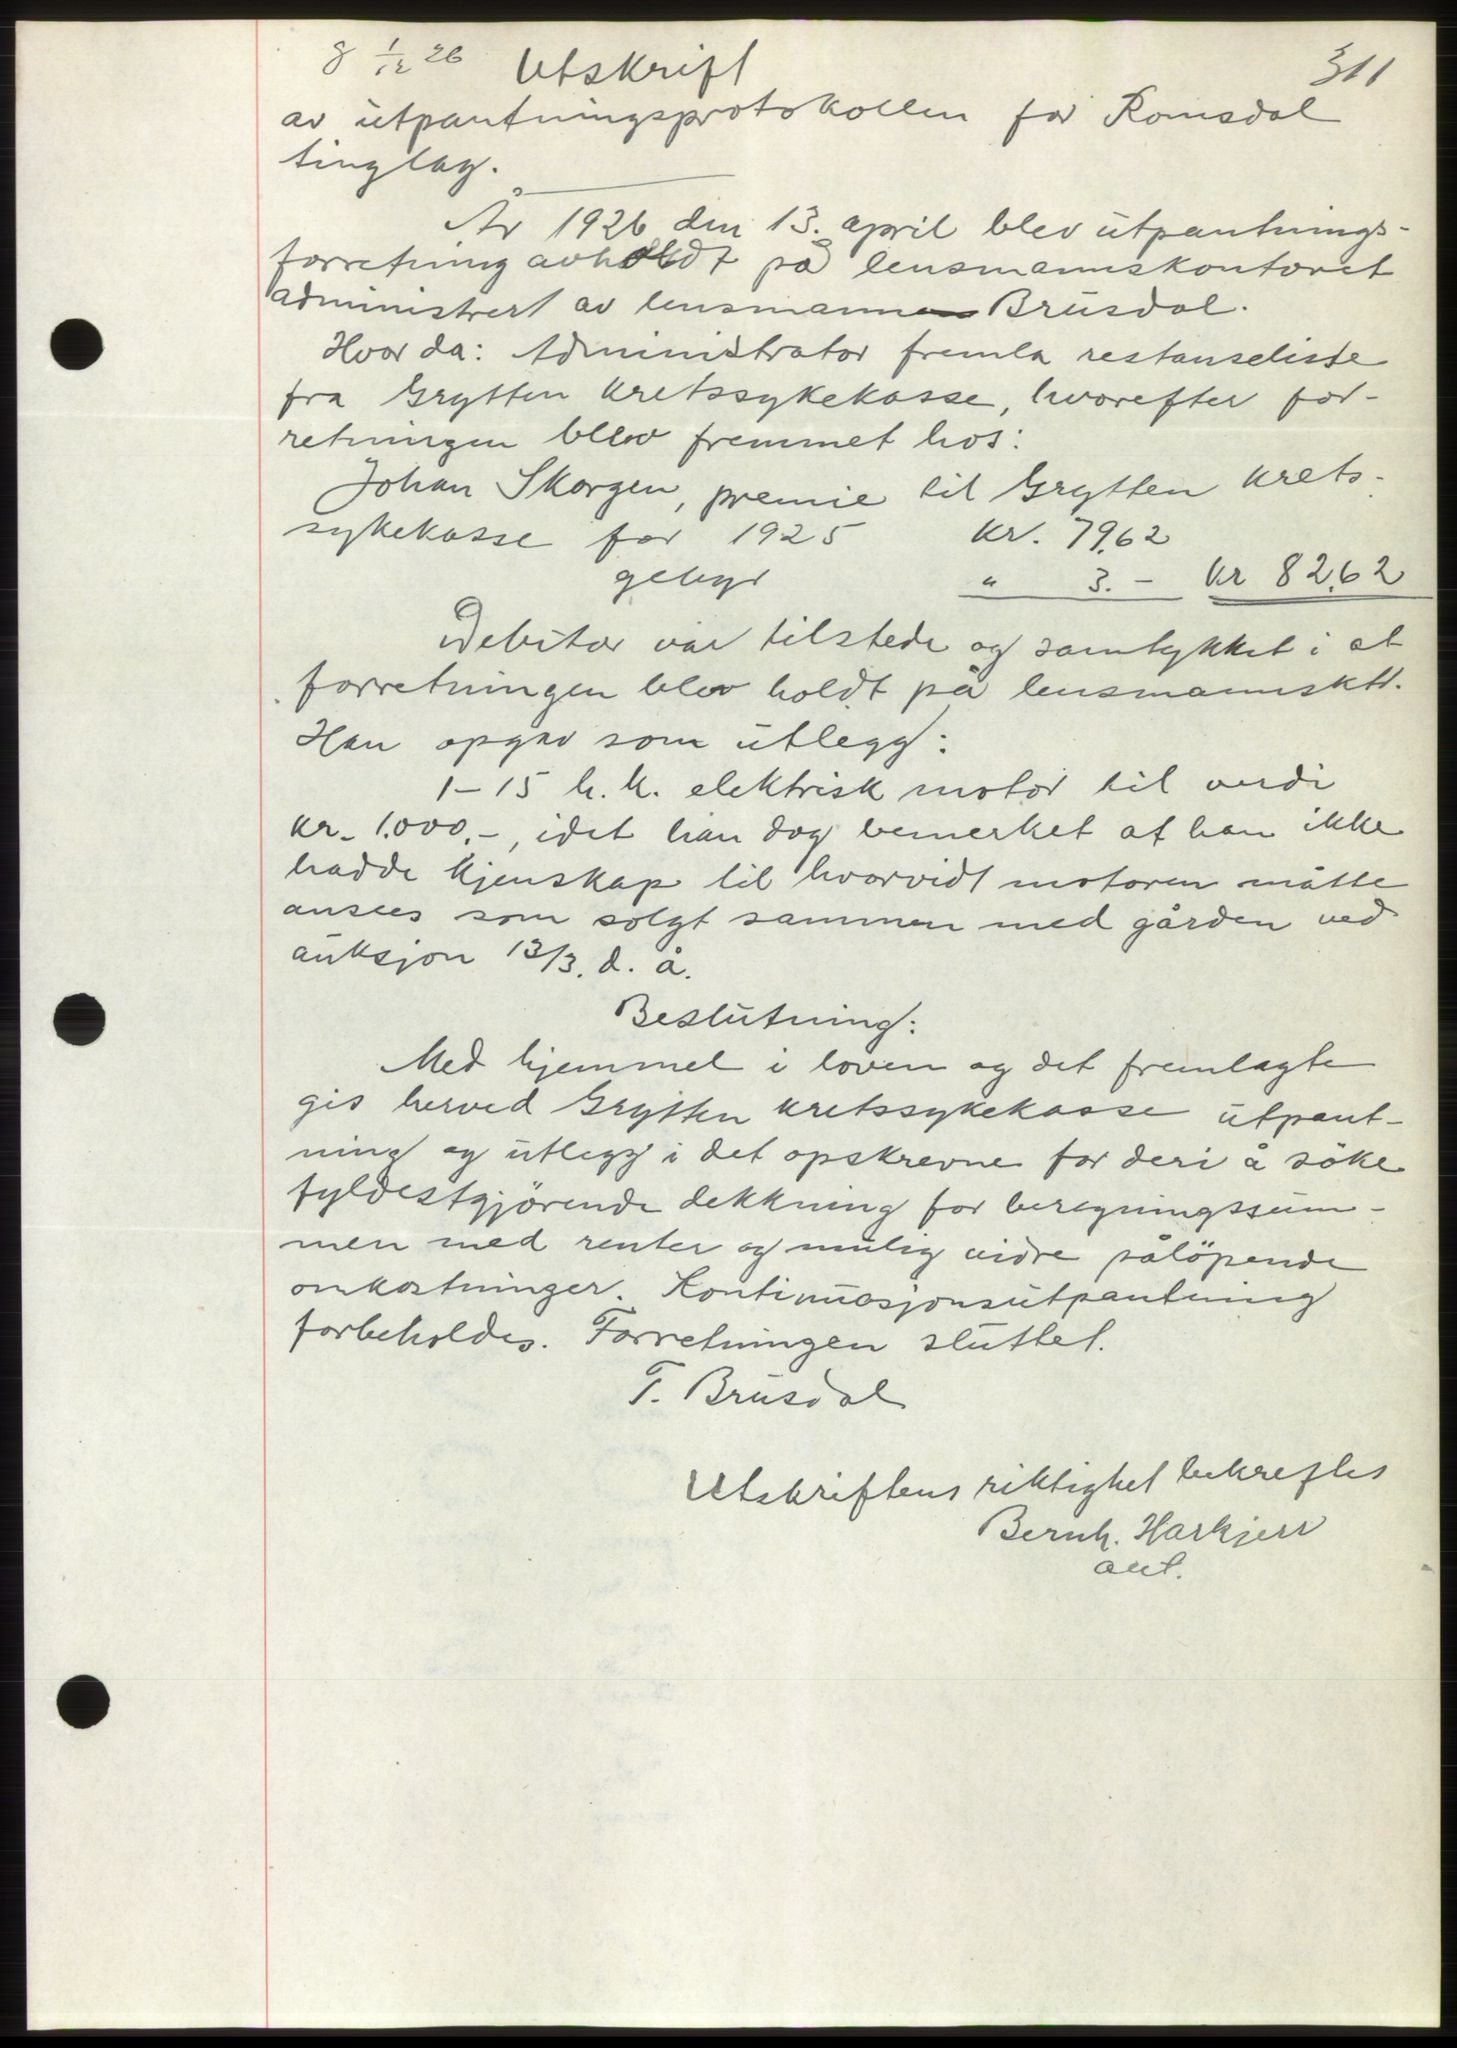 8 1/12 26 Utskrift 311
av utpantningsprotokollen for Romsdal
tinglag.
År 1926 den 13. april blev utpantnings-
forretning avholdt på lensmannskontoret
administrert av lensmann Brusdal.
Hvor da: Administrator fremla restanseliste
fra Grytten kretssykekasse, hvorefter for-
retningen blev fremmet hos:
Johan Skorgen, premie til Grytten krets-
sykekasse for 1925 kr. 79,62
gebyr " 3.- kr 82,62
Debitor var tilstede og samtykket i at
forretningen blev holdt på lensmannsktr.
Han opgav som utlegg:
1-15 h.k. elektrisk motor til verdi
kr. 1.000.-, idet han dog bemerket at han ikke
hadde kjenskap til hvorvidt motoren måtte
ansees som solgt sammen med gården ved
auksjon 13/3. d. å.
Beslutning:
Med hjemmel i loven og det fremlagte
gis herved Grytten kretssykekasse utpant-
ning og utlegg i det opskrevne for deri å söke
fyldestgjörende dekkning for beregningssum-
men med renter og mulig vidre pålöpende
omkostninger. Kontinuasjonsutpantning
forbeholdes. Forretningen sluttet.
T. Brusdal
Utskriftens riktighet bekreftes
Bernh. Harkjerr
aut.